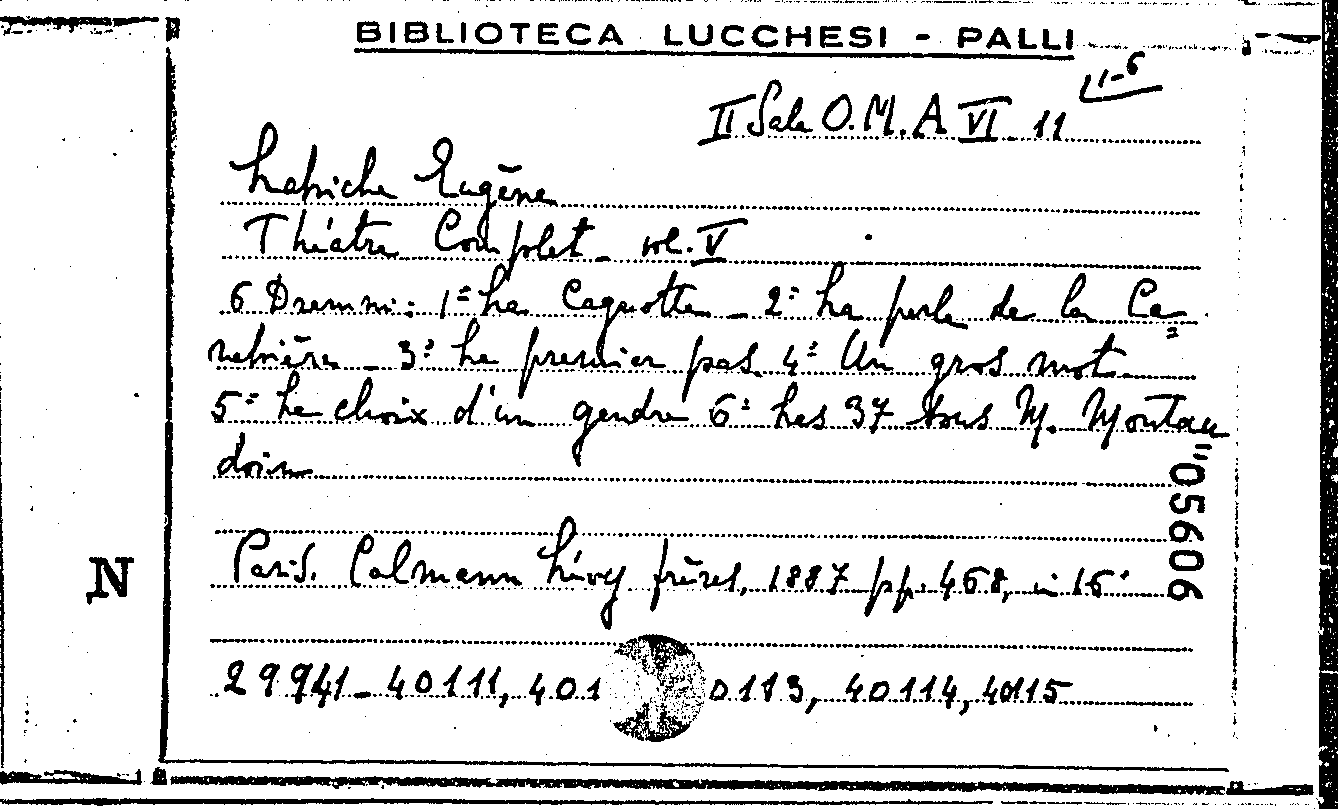 BIBLIOTECA LUCCHESI - PALLI
11-6
II Sala O.M.A VI 11
Labiche Eugène
Théatre Complet - vol. V
6 Drammi: 1º La Cagnotte - 2º La perle de la Ca=
nebière - 3º Le premier pas. 4º Un gros mot.
5º Le choix d'un gendre 6º Les 37 sous M. Montau
doin
Paris. Calmann Lévy frères, 1887 pp. 468, in 16º
29941 - 40111, 401 0113, 40114, 40115
"05606
N